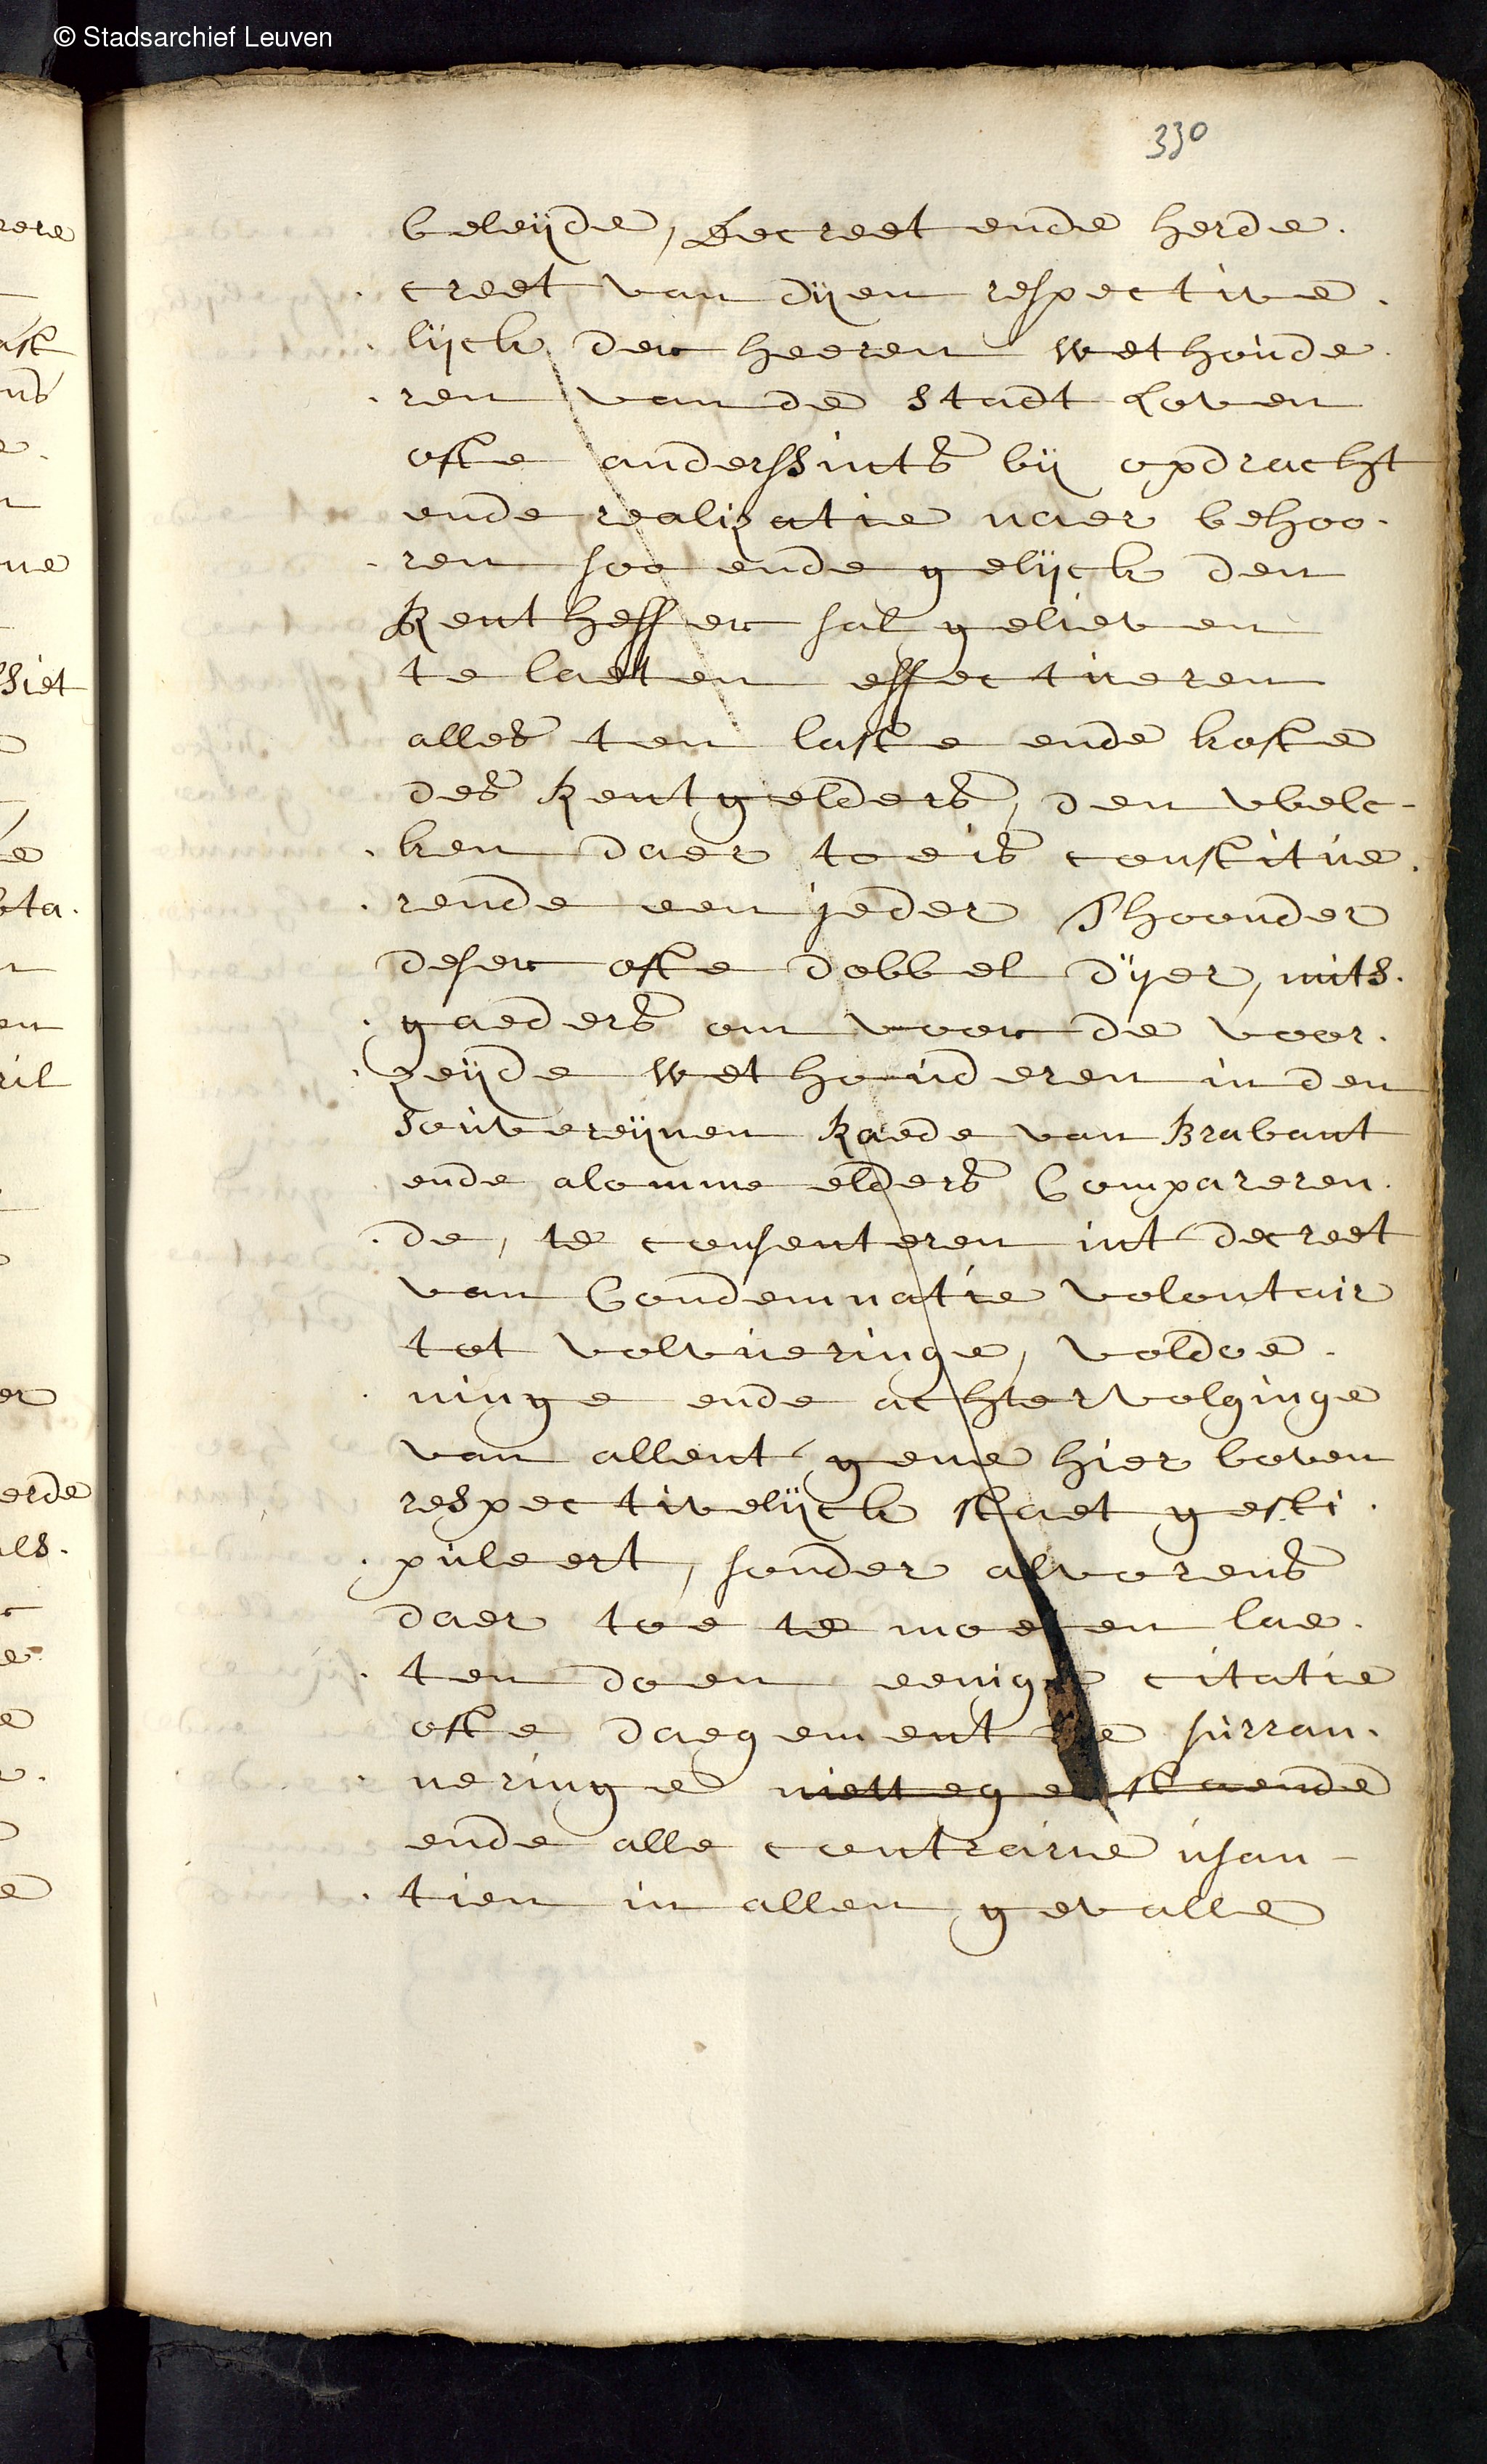 © Stadsarchief Leuven
330
beleijde, Decreet ende herde.
creet van dijen respective.
lijck der heeren wethoude.
ren van de stadt Loven
ofte anderssints bij opdracht
ende realizatie naer behoo.
ren soo ende gelijck den
Rentheffer sal gelieven
te laeten effectueren
alles ten laste ende koste
des Rentgelders, den welc-
ken daer toe is constitue.
rende een jeder Thoonder
deser ofte dobbel dijer, mits.
gaeders om voor de voor.
zeijde wethouderen in den
souvereijnen Raede van Brabant
ende alomme elders Compareren.
de, te consenteren int decreet
van Condemnatie volontair
tot volvueringe, voldoe.
ninge ende achtervolginge
van allent gene hier boven
respectivelijck staet gesti.
puleert, sonder alvorens
daer toe te moeten lae.
ten doen eenige citatie
ofte daegement de surran.
neringe niettegenstaende
ende alle contrarie usan-
tien in allen gevalle